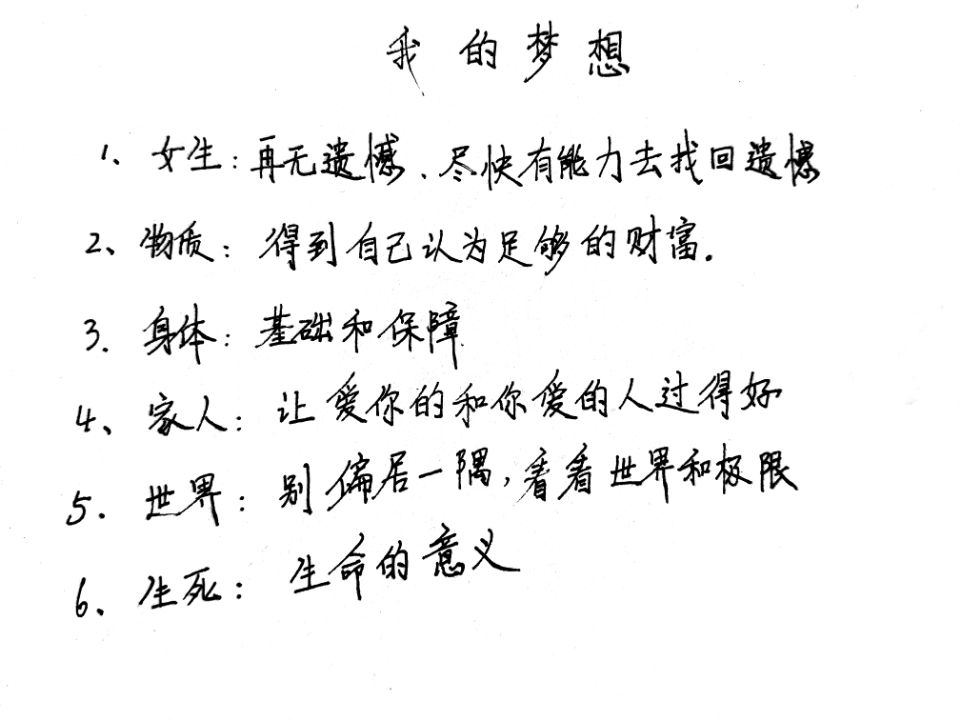 我的梦想
1、女生:再无遗憾、尽快有能力去找回遗憾
2、物质:得到自己认为足够的财富.
3.身体:基础和保障
4、家人:让爱你的和你爱的人过得好
5.世界:别偏居一隅,看看世界和极限
6、生死:生命的意义